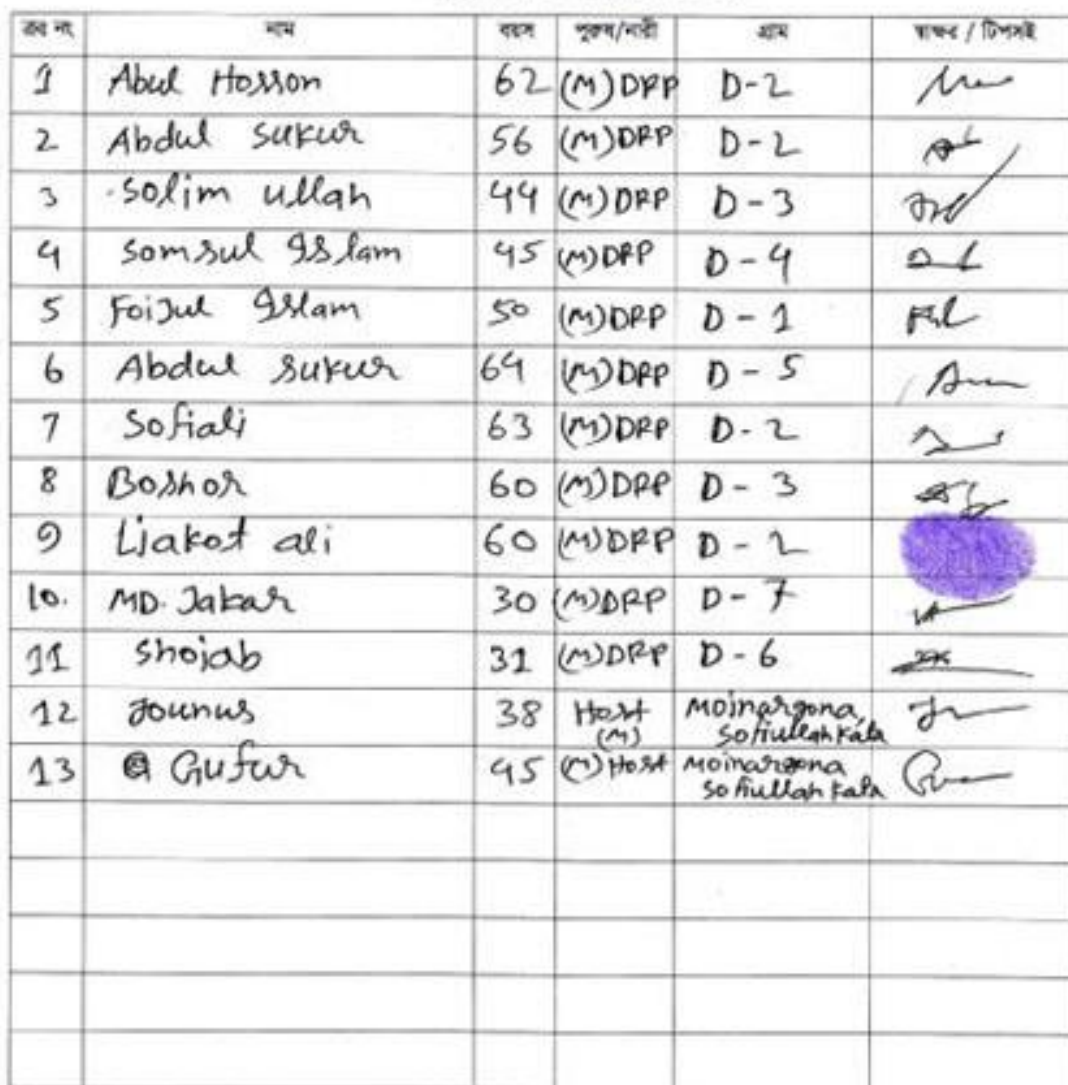 ক্রঃ নং নাম বয়স পুরুষ/নারী গ্রাম স্বাক্ষর / টিপসই
1 Abul Hosson 62 (M) DRP D-2
2 Abdul Sukur 56 (M) DRP D-2
3 Solim ullah 44 (M) DRP D-3
4 Somsul Islam 45 (M) DRP D-4
5 Foijul Islam 50 (M) DRP D-1
6 Abdul Sukur 64 (M) DRP D-5
7 Sofiali 63 (M) DRP D-2
8 Boshor 60 (M) DRP D-3
9 Liakot ali 60 (M) DRP D-2
10. MD. Jakar 30 (M) DRP D-7
11 Shojab 31 (M) DRP D-6
12 Jounus 38 Host (M) Moinargona, Sofiullah Kata
13 Gufur 45 (M) Host Moinargona Sofiullah Kata